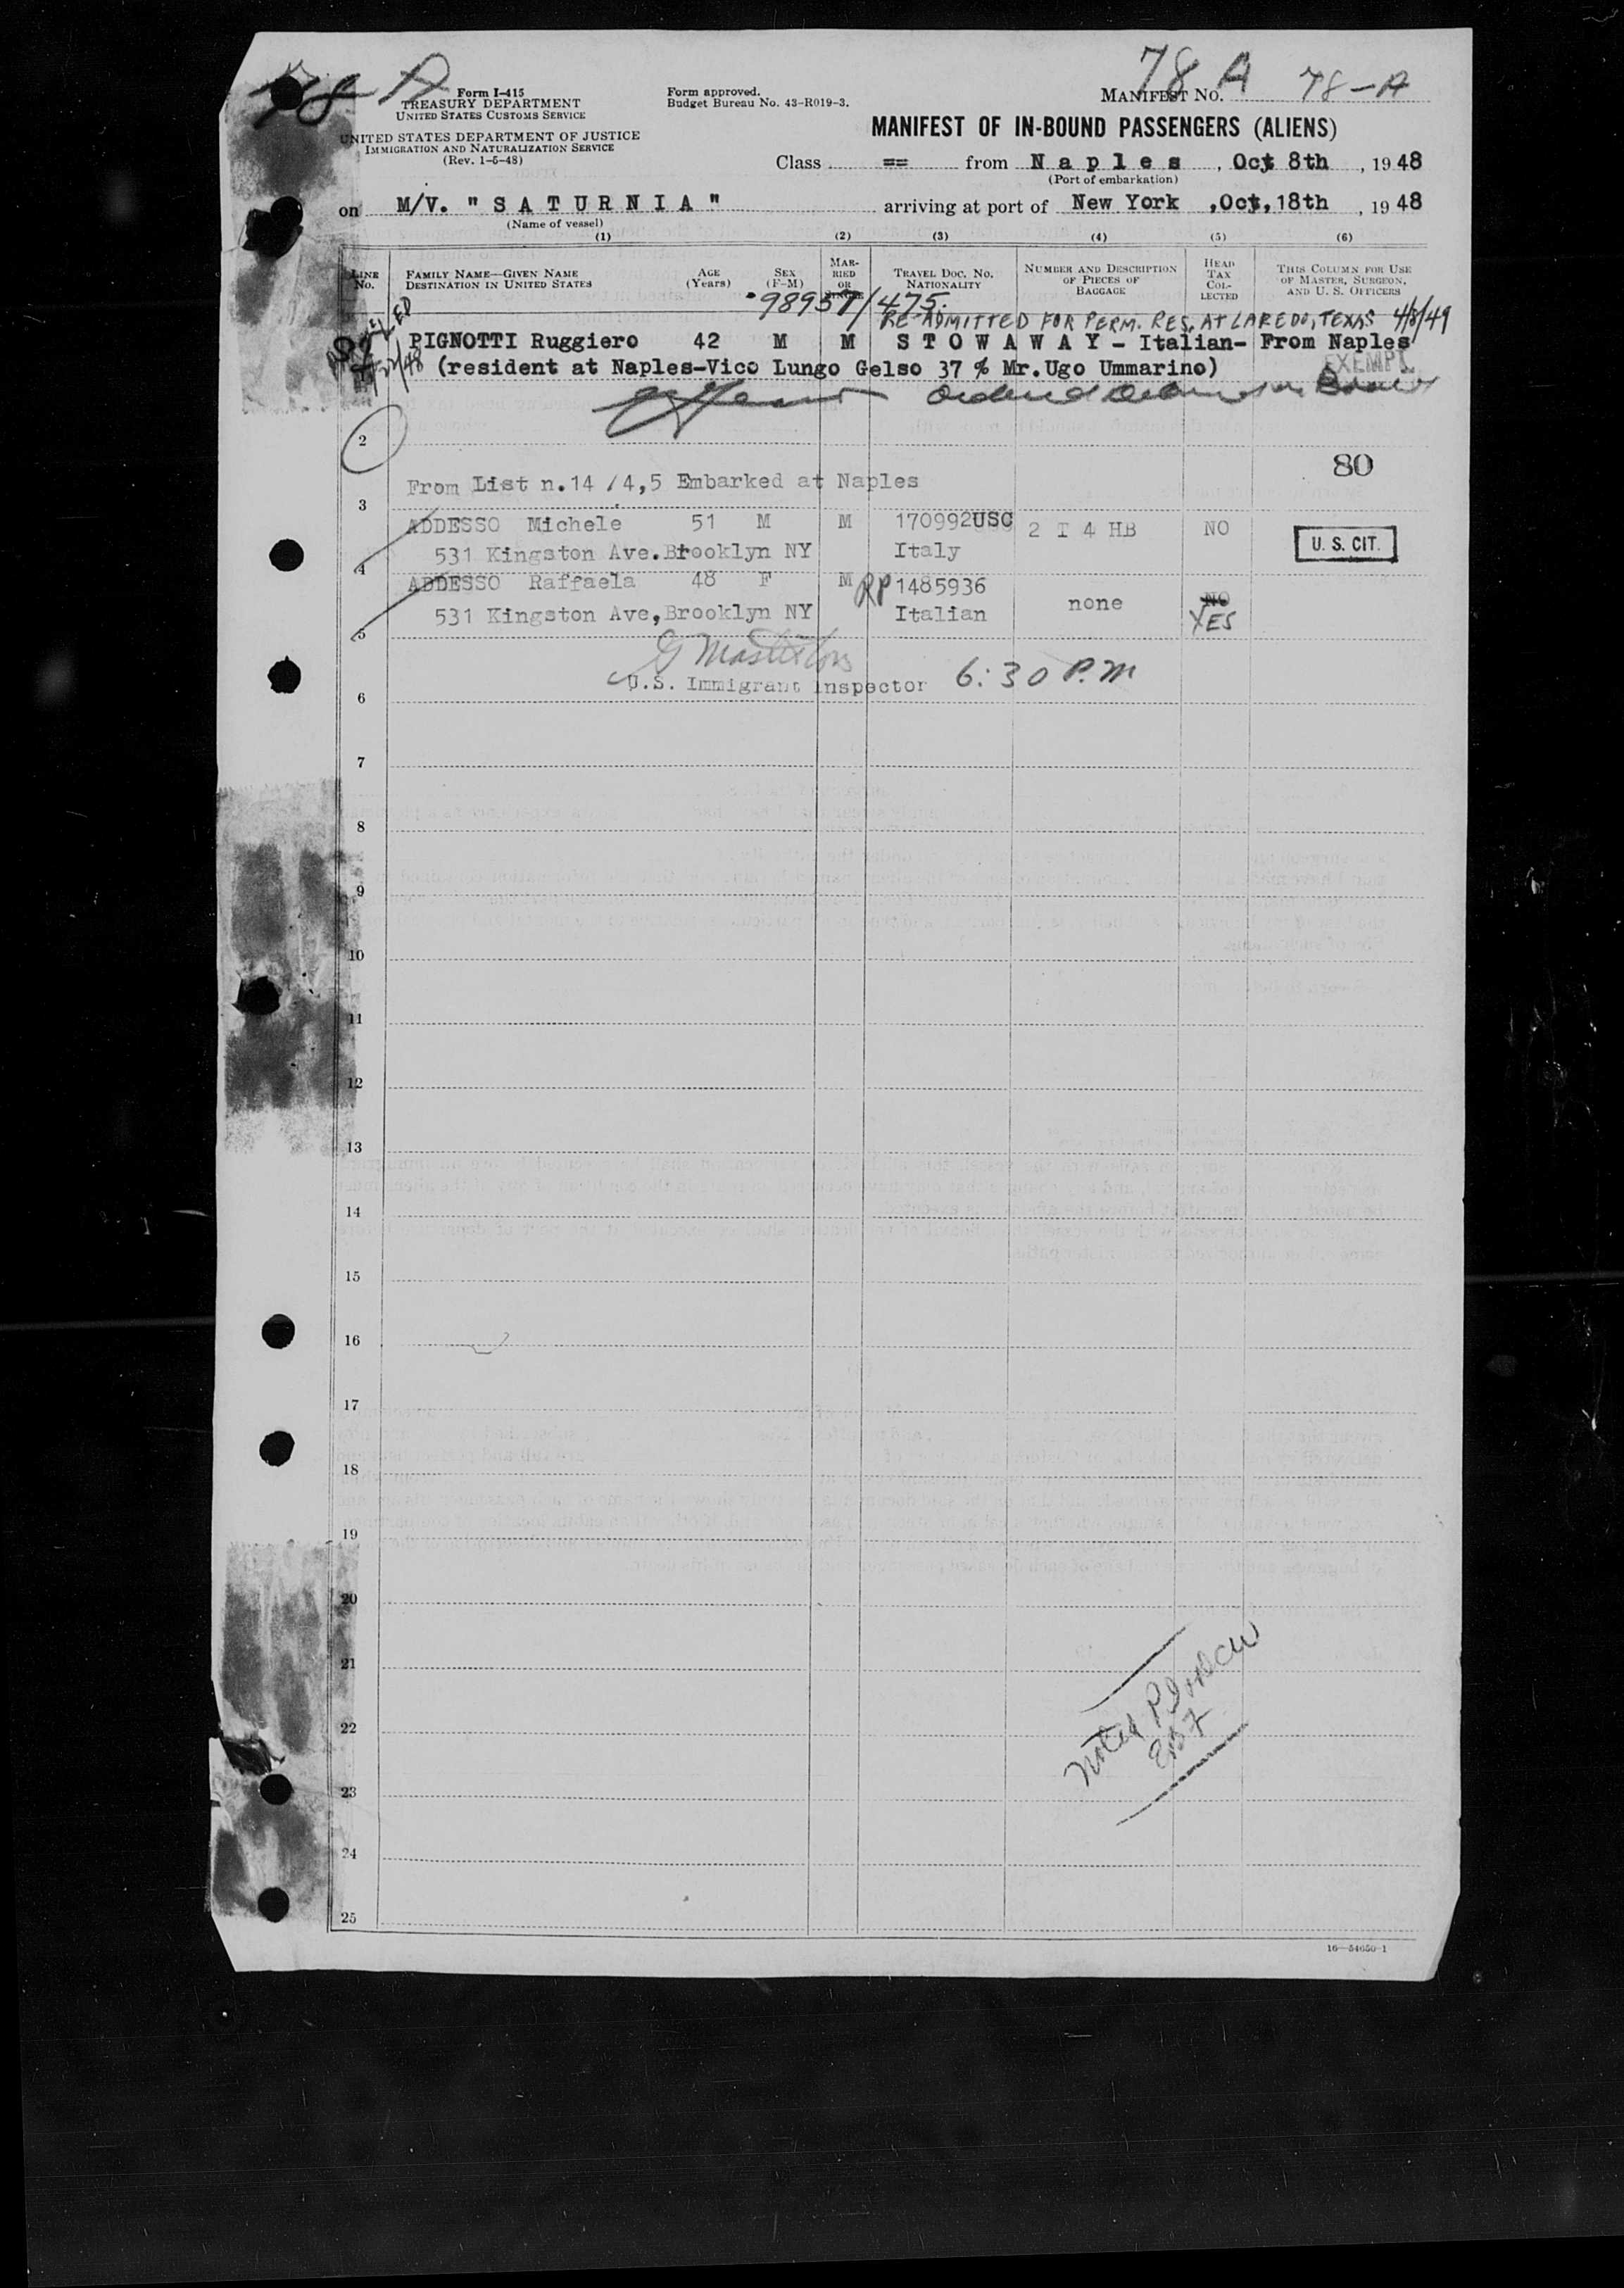 78 A
78-A
Form I-415
TREASURY DEPARTMENT
UNITED STATES CUSTOMS SERVICE
UNITED STATES DEPARTMENT OF JUSTICE
IMMIGRATION AND NATURALIZATION SERVICE
(Rev. 1-5-48)
Form approved.
Budget Bureau No. 43-R019-3.
MANIFEST NO.
MANIFEST OF IN-BOUND PASSENGERS (ALIENS)
Class == from Naples, Oct 8th, 1948
(Port of embarkation)
on M/V. "SATURNIA" arriving at port of New York, Oct, 18th, 1948
(Name of vessel)
(1) (2) (3) (4) (5) (6)
LINE NO.
FAMILY NAME—GIVEN NAME
DESTINATION IN UNITED STATES
AGE (Years)
SEX (F-M)
MARRIED OR SINGLE
TRAVEL DOC. NO. NATIONALITY
NUMBER AND DESCRIPTION OF PIECES OF BAGGAGE
HEAD TAX COLLECTED
THIS COLUMN FOR USE OF MASTER, SURGEON, AND U. S. OFFICERS
98957/475.
RE-ADMITTED FOR PERM. RES. AT LAREDO, TEXAS 4/8/49
PIGNOTTI Ruggiero 42 M M STOWAWAY - Italian- From Naples
(resident at Naples-Vico Lungo Gelso 37 % Mr. Ugo Ummarino)
EXEMPT
2
80
From List n.14 /4,5 Embarked at Naples
3
ADDESSO Michele 51 M M 170992USC 2 T 4 HB NO
531 Kingston Ave. Brooklyn NY Italy
U. S. CIT.
4
ADDESSO Raffaela 48 F M RP 1485936 none NO
531 Kingston Ave, Brooklyn NY Italian YES
5
U.S. Immigrant Inspector 6:30 P.M
6
7
8
9
10
11
12
13
14
15
16
17
18
19
20
21
22
23
24
25
16—54650-1